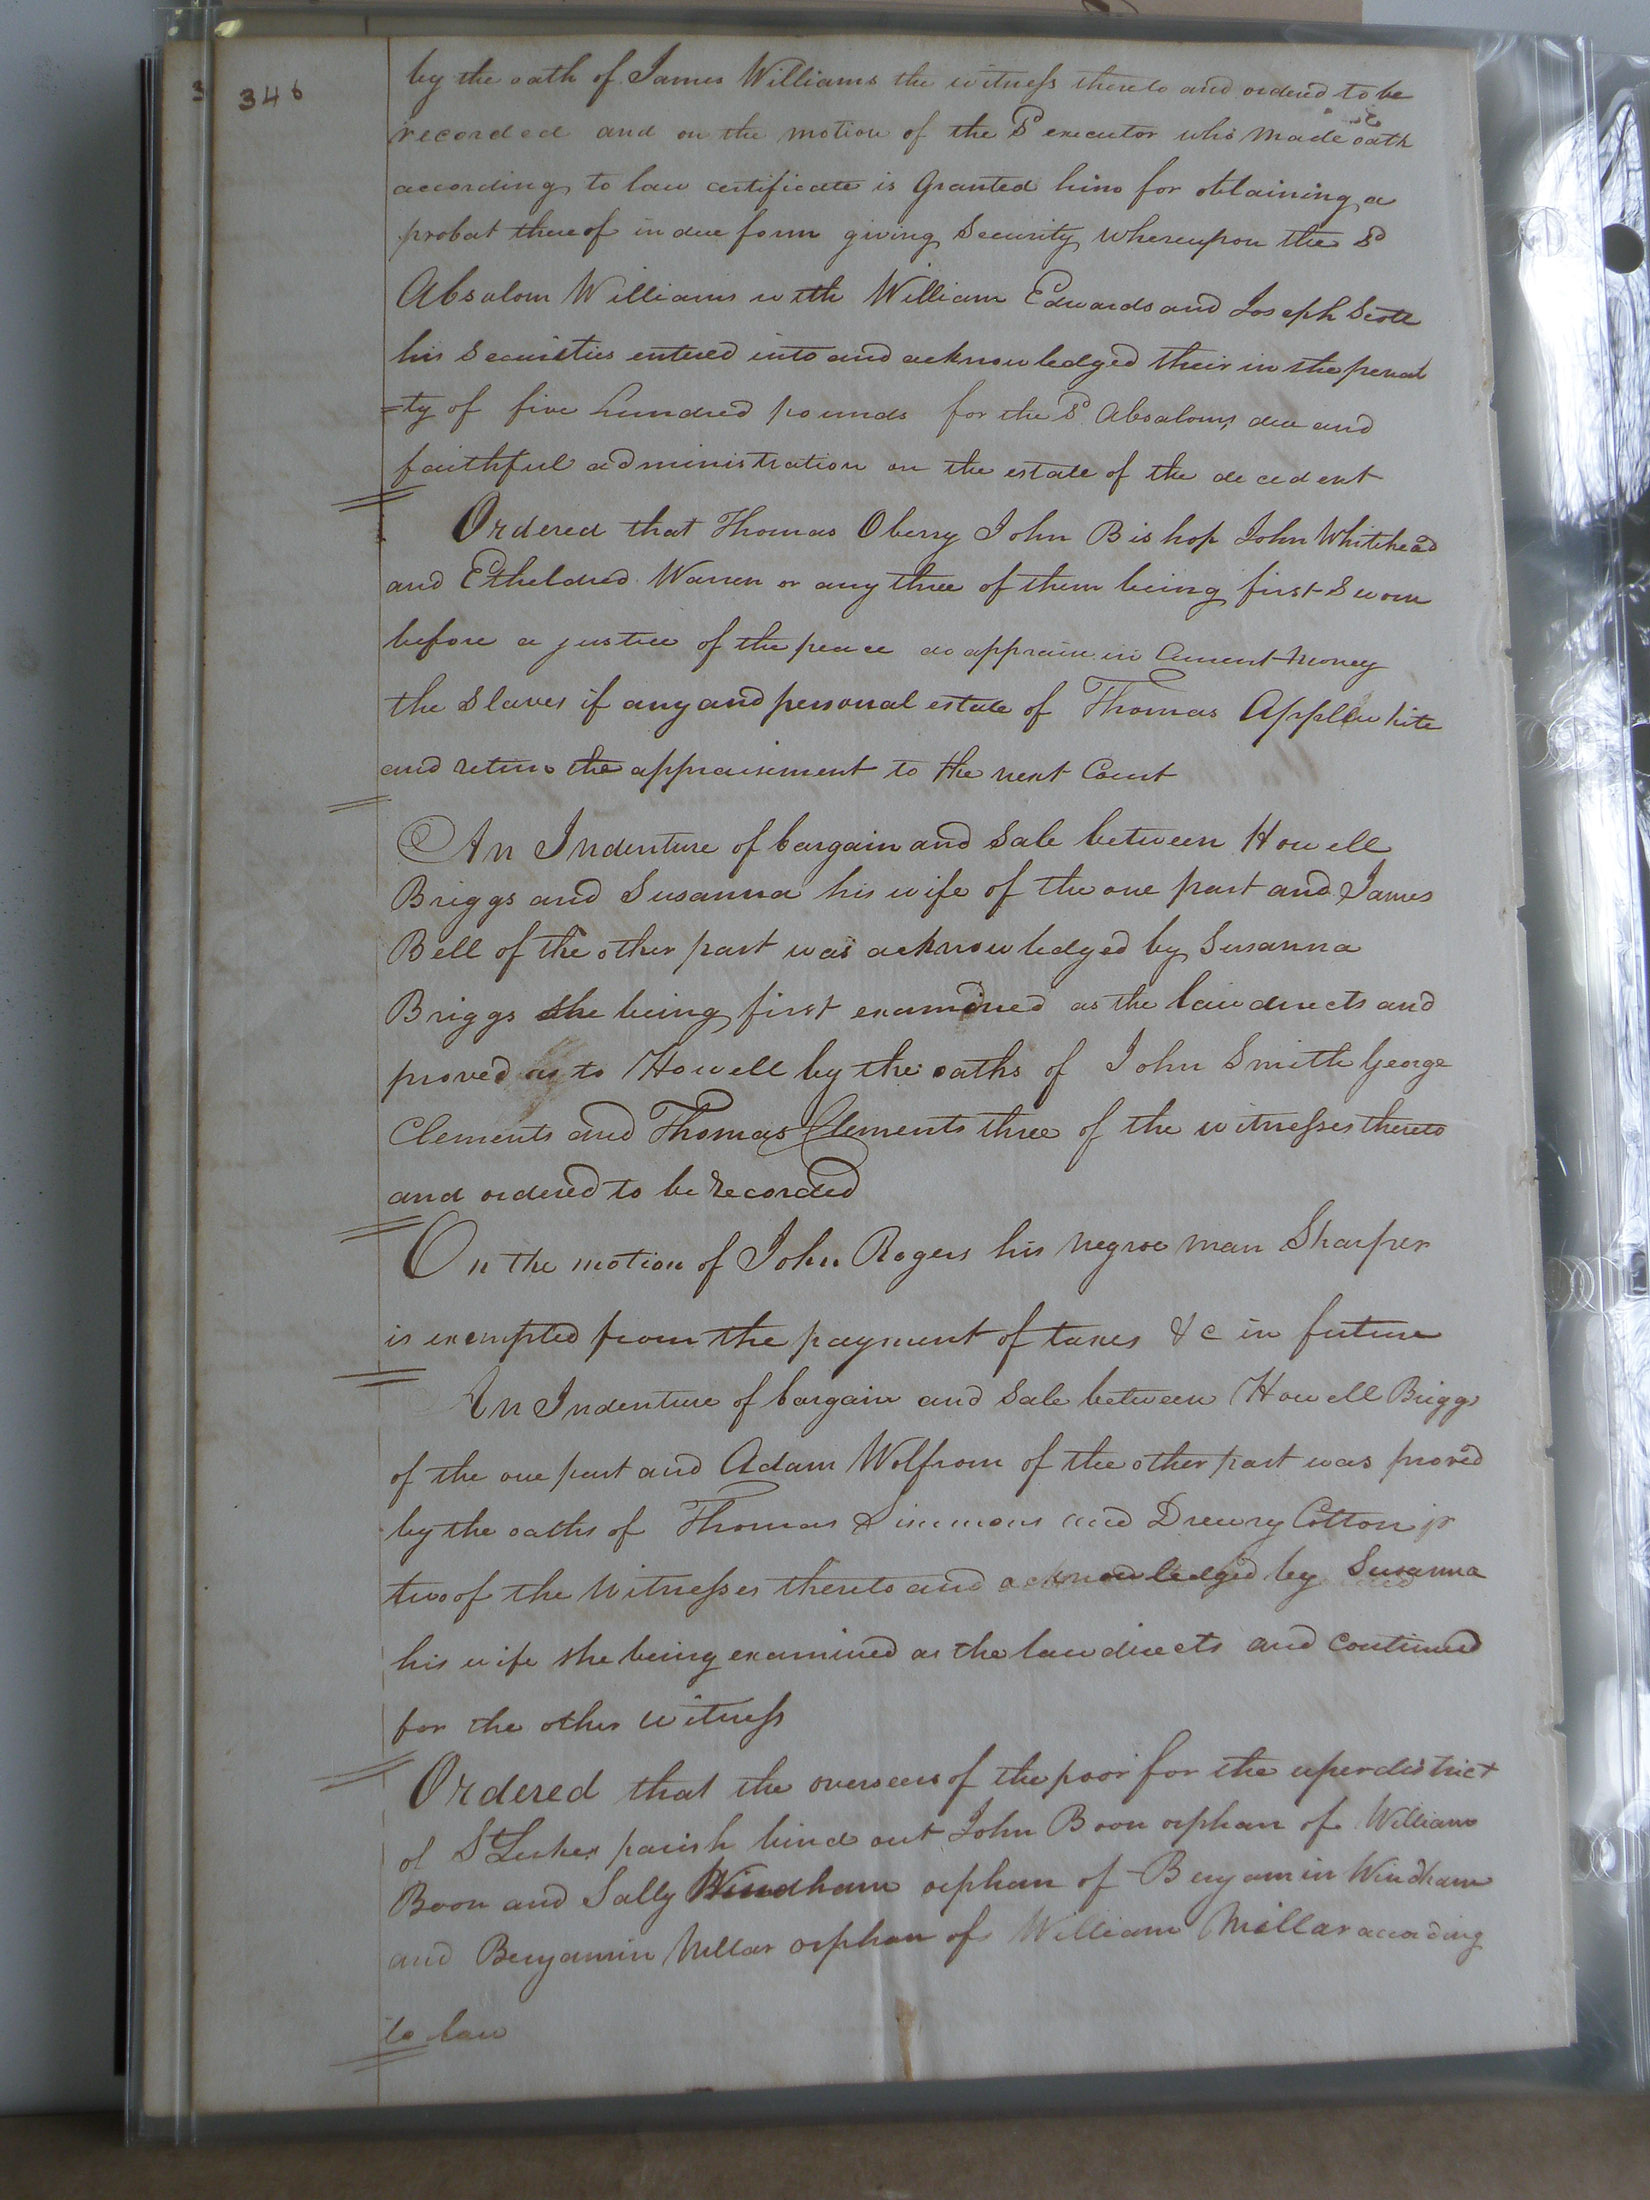 346
by the oath of James Williams the witness thereto and ordered to be
recorded and on the motion of the Sd executor who made oath
according to law certificate is Granted him for obtaining a
probat thereof in due form giving Security Whereupon the Sd
Absalom Williams with William Edwards and Joseph Scott
his Securities entered into and acknowledged their in the penal
=ty of five hundred pounds for the Sd Absaloms due and
faithful administration on the estate of the decedent
Ordered that Thomas Oberry John Bishop John Whitehead
and Etheldred Warren or any three of them being first Sworn
before a justice of the peace do appraise in Current money
the Slaves if any and personal estate of Thomas Applewhite
and return the appraisement to the next Court
An Indenture of bargain and Sale between Howell
Briggs and Susanna his wife of the one part and James
Bell of the other part was acknowledged by Susanna
Briggs she being first examined as the law directs and
proved as to Howell by the oaths of John Smith George
Clements and Thomas Clements three of the witnesses thereto
and ordered to be recorded
On the motion of John Rogers his negroe man Sharper
is exempted from the payment of taxes &c in future
An Indenture of bargain and Sale between Howell Briggs
of the one part and Adam Wolfrom of the other part was proved
by the oaths of Thomas Simmons and Drewry Cotton jr
two of the Witnesses thereto and acknowledged by Susanna
his wife she being examined as the law directs and Continued
for the other witness
Ordered that the overseers of the poor for the uper district
of St Lukes parish bind out John Boon orphan of William
Boon and Sally Windham orphan of Benjamin Windham
and Benjamin Millar orphan of William Millar according
to law